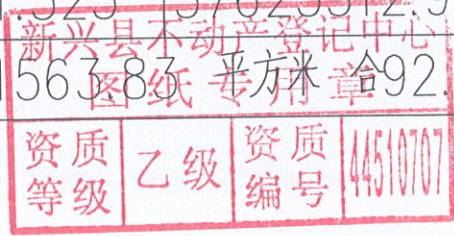 新兴县不动产登记中心
563.83 平方米 合92.
图纸专用章
资质等级 乙级 资质编号 44510707